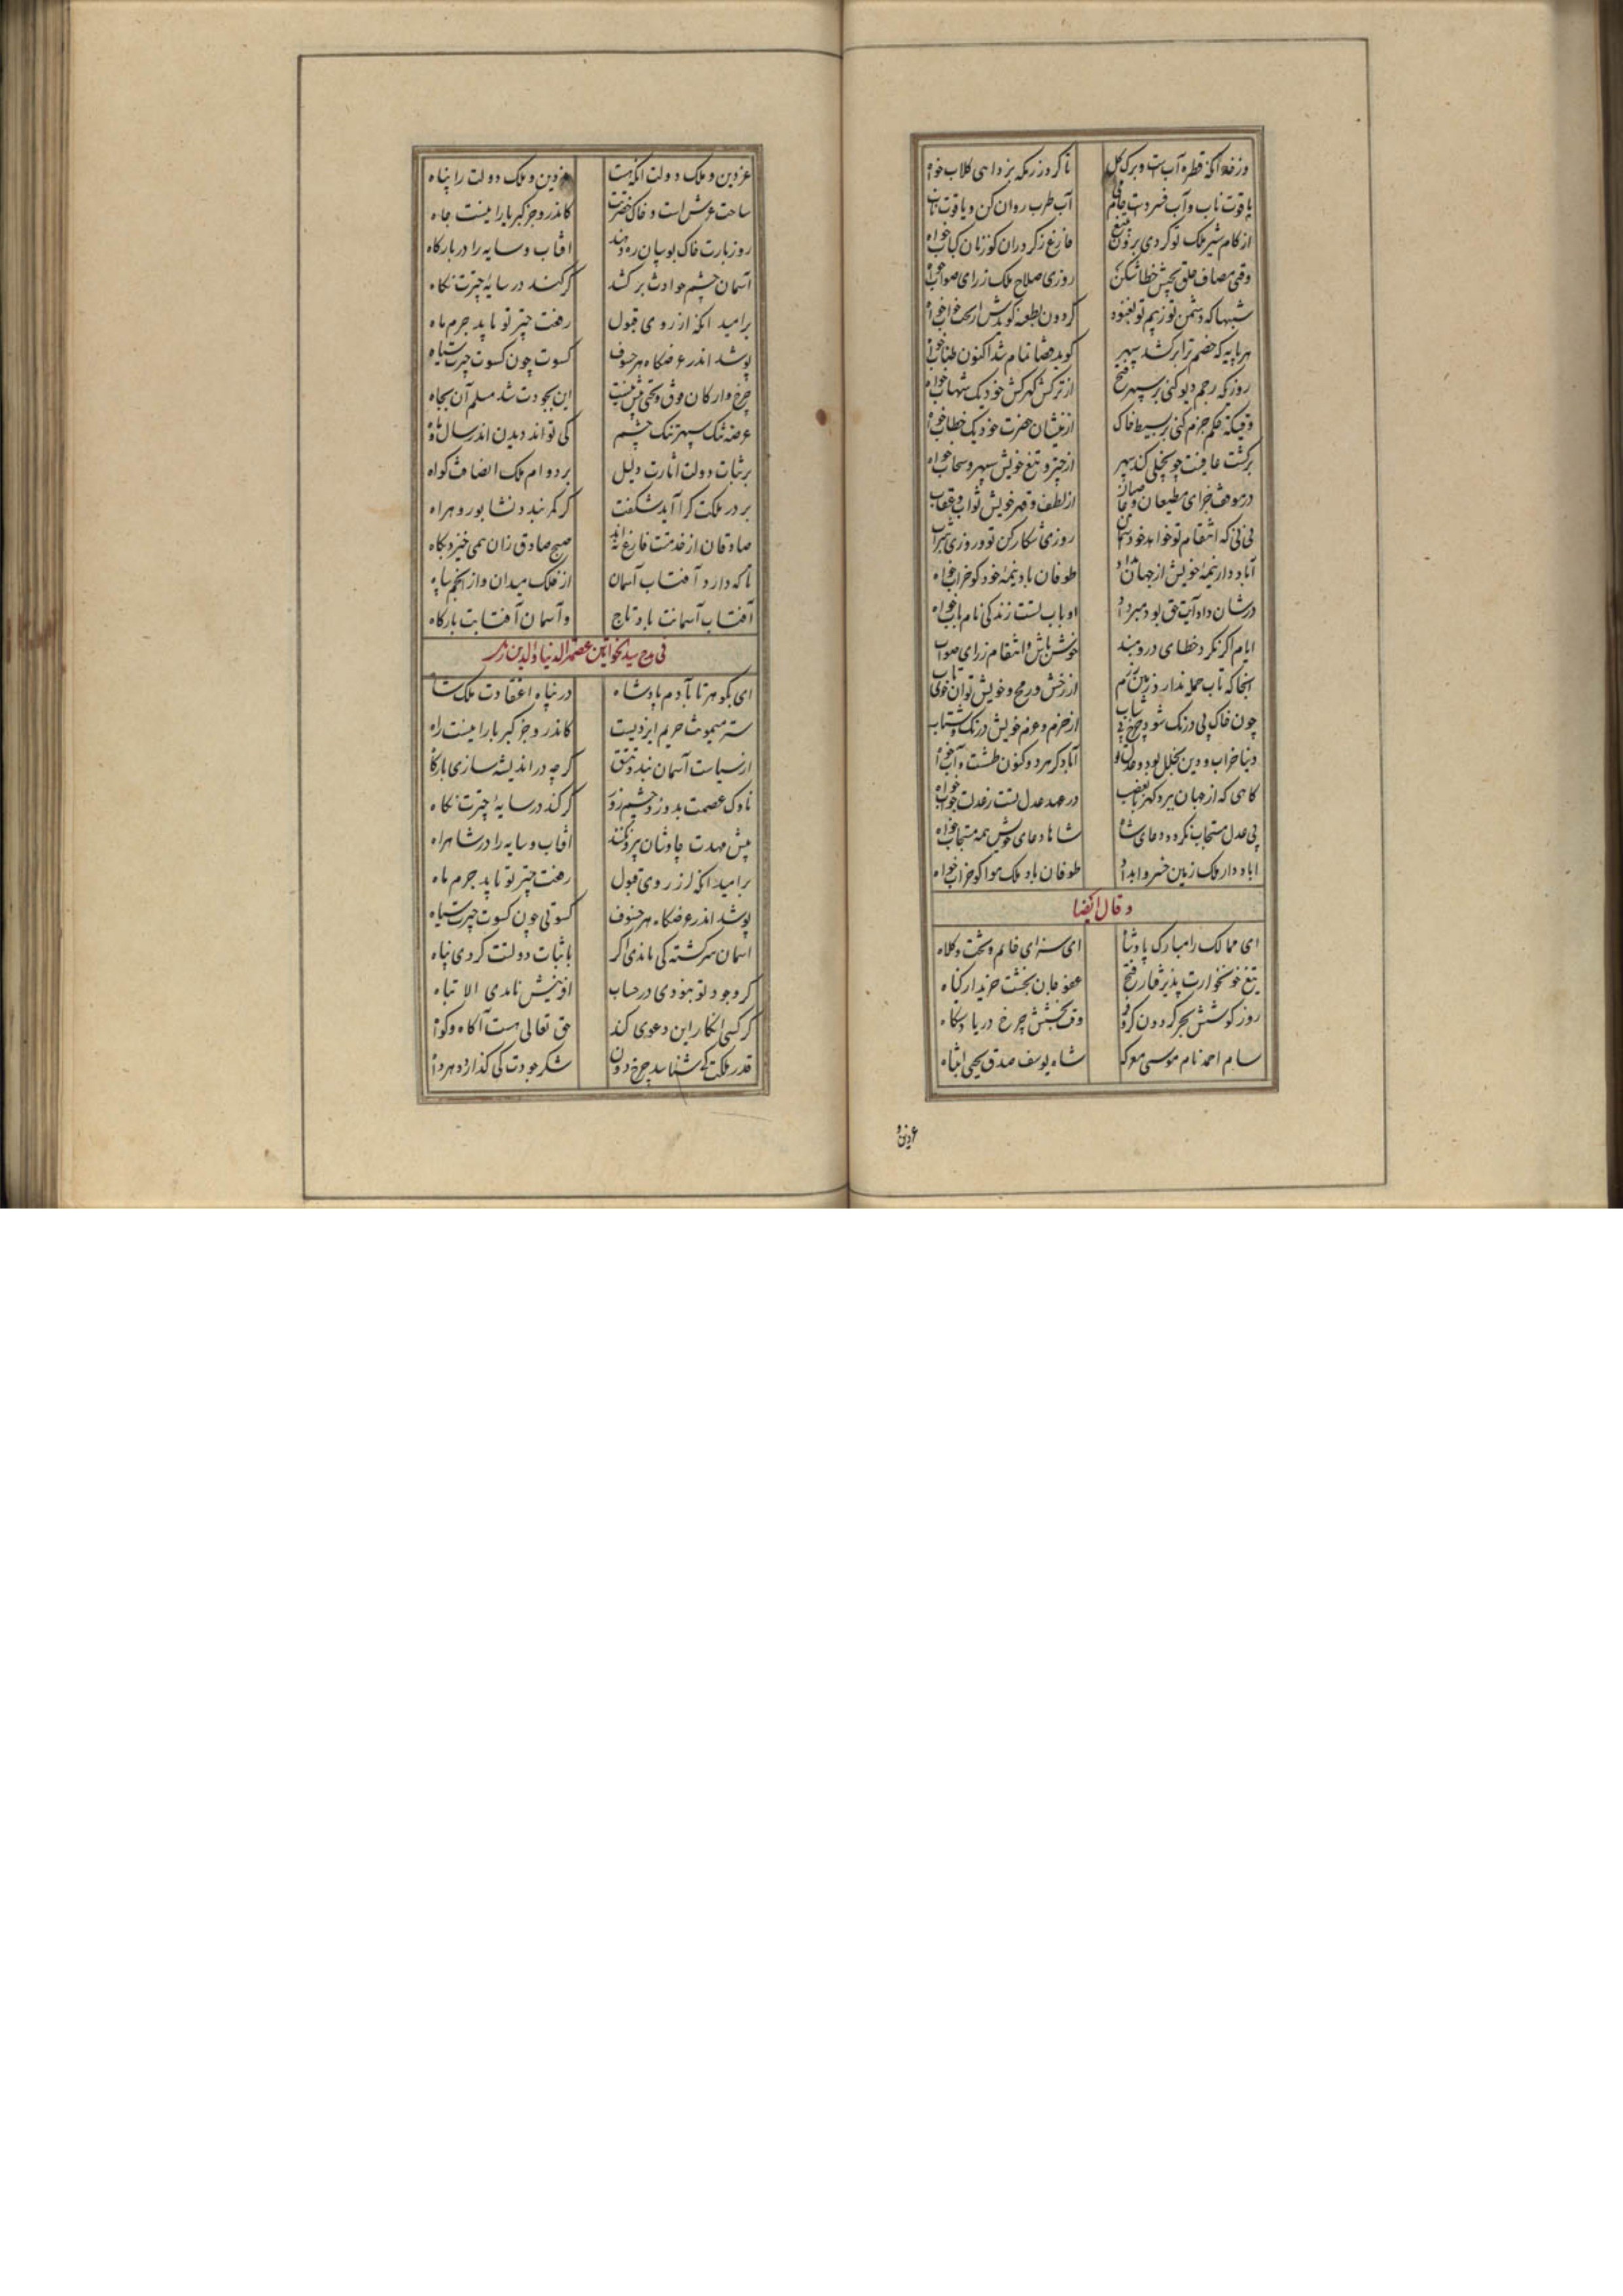 وزخد انکه قطره آب است و برک کل تا کر روزرمکه بزداهی کلاب خواه
یاقوت ناب و آب فسرده است جام می آب طرب روان کن و یاقوت ناب
از کام شیر ملک تو کردی برون بتیغ فارغ ز کردران کوزنان کباب خواه
وقتی مصاف خلق بخش خطا شکن روزی صلاح ملک ز رای صواب خواه
شبها که دشمن تو زبیم تو نغنود کردون بطعنه کویدش ار بخت خواب خواه
هر پایه که خصم ترا برکشد سپهر کوید قضا تمام شد اکنون طناب خواه
روزیکه رجم دیو کنی بر سپهر فتح از ترکش کهرکش خود یک شهاب خواه
وقتیکه حکم جزم کنی بر بسیط خاک از منشیان حضرت خود یک خطاب خواه
برکشت عافیت چو بخیلی کند سپهر از چتر و تیغ خویش سپهر و سحاب خواه
در موقف جزای مطیعان و عاصیان از لطف و قهر خویش ثواب و عقاب
نی نی که انتقام تو خواهد خود آسمان روزی شکار کن تو و روزی شراب
آباد دار نیمه خویش از جهان بداد طوفان باد نیمه خود کو خراب خواه
در شان داد آیت حق بود مبرداد او باب تست زندکی نام باب خواه
ایام اکر نکرد خطای درو مبند خوش باش و انتقام ز رای صواب
انجا که تاب حمله ندارد زمین رزم از رخش و رمح خویش توان خواه تاب
چون خاک پی درنک شود چرخ بی شتاب از حزم و عزم خویش درنک و شتاب
دنیا خراب و دین بخلل بود عدل تو آباد کرد هر دو کنون طشت و آب خواه
کاهی که از جهان ببرد کهربا بغصب در عهد عدل تست ز عدلت جواب خواه
بی عدل مستجاب نکردد دعای شاه شاها دعای خویش همه مستجاب خواه
اباد دار ملک زمین خسروا بداد طوفان باد ملک هوا کو خراب خواه
و قال ایضا
ای ممالک را مبارک پادشاه ای سزای خاتم و تخت و کلاه
تیغ خونخوارت پذیرفتار فتح عفو جان بخشت خریدار کناه
روز کوشش بحر کردون کر و فر وقت بخشش چرخ دریا دستکاه
سام احمد نام موسی معرکه شاه یوسف صدق یحیی انتباه
عز دین و
عز دین و ملک و دولت انکه هست عز دین و ملک و دولت را پناه
ساحت عرش است و خاک حضرتت کاندرو جز کبریا را نیست جاه
روز بارت خاک بوسان ره دهند افتاب و سایه را در بارکاه
آسمان چشم حوادث برکشد کر کند در سایه چترت نکاه
بر امید انکه از روی قبول رفعت چتر تو یابد جرم ماه
پوشد اندر عرضکاه هر خسوف کسوت چون کسوت چترت سیاه
چرخ و ارکان فوق و تحتی بیش نیست این بجودت شد مسلم آن بجاه
عرصه تنک سپهر تنک چشم کی تواند دیدن اندر سال و ماه
بر ثبات دولت آثارت دلیل بر دوام ملک انصافت کواه
بر در ملکت کرا آید شکفت کر کمر بندد نشابور و هراه
صادقان از خدمتت فارغ نیند صبح صادق زان همی خیزد بکاه
تا که دارد آفتاب آسمان از فلک میدان و از انجم سپاه
آفتاب آسمانت باد تاج و آسمان آفتابت بارکاه
فی مدح سیده الخواتین عصمه الدنیا و الدین
ای بکوهر تا بآدم پادشاه در پناه اعتقادت ملک شاه
ستر میمونت حریم ایزدیست کاندرو جز کبریا را نیست راه
از سیاست آسمان بندد تتق کر چه در اندیشه سازی بارکاه
ناوک عصمت بدوزد چشم روز کر کند در سایه چترت نکاه
پیش مهدت چاوشان بیرون کنند افتاب و سایه را در شاهراه
بر امید انکه از روی قبول رفعت چتر تو یابد جرم ماه
پوشد اندر عرضکاه هر خسوف کسوتی چون کسوت چترت سیاه
اسمان سرکشته کی ماندی اکر با ثبات دولتت کردی پناه
کر وجود تو نبودی در حساب افرینش نامدی الا تباه
کر کسی انکار این دعوی کند حق تعالی هست آکاه و کواه
قدر ملکت کی شناسد چرخ دون شکر جودت کی کذارد دهر داه